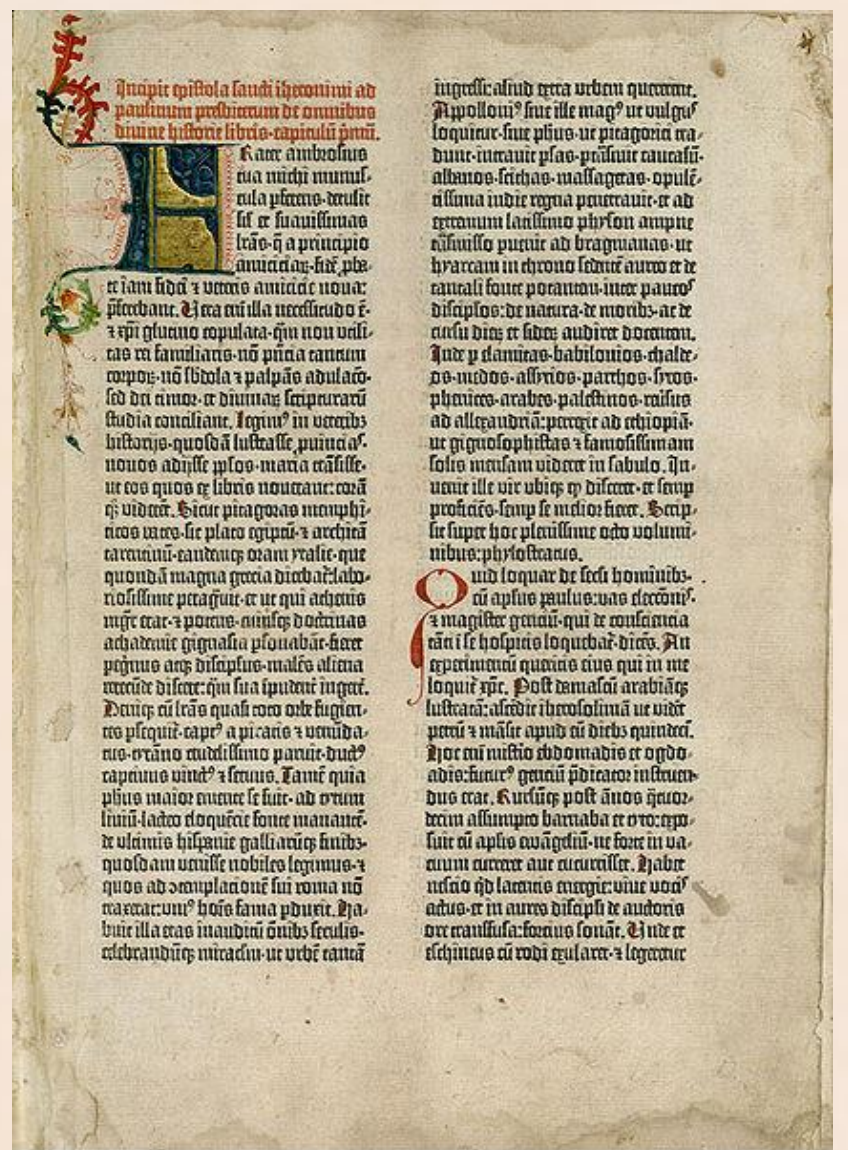 Incipit epistola sancti iheronimi ad
paulinum presbiterum de omnibus
divine historie libris·capitulū pmū.
Frater ambrosius
tua michi munus-
cula pferens·detulit
sil et suavissimas
lrās·q̄ a principio
amiciciaꝝ·fidē pba-
te iam fidei ⁊ veteris amicicie nova:
pferebant. Vera enī illa necessitudo ē·
⁊ xpi glutino copulata·qm non utili-
tas rei familiaris·nō pncia tantum
corpoꝝ·nō sbdola ⁊ palpās adulacō·
sed dei timor·et divinaꝝ scripturarū
studia conciliant. Legim⁹ in veterib⁊
historijs·quosdā lustrasse, puincias·
novos adijsse pplos·maria trāsisse·
ut eos quos ex libris noverant: corā
q⁊ viderēt. Sicut pitagoras memphi-
ticos vates·sic plato egiptū·⁊ architā
tarentinū·eandemq⁊ oram ytalie·que
quondā magna grecia dicebat̄: labo-
riosissime peragvit·et ut qui athenis
mgr erat·⁊ potens·cuiusq⁊ doctrinas
achademie gignasia psonabāt·fieret
pegrinus atq⁊ discipulus·malēs aliena
verecūde discere: qm sua īpudent̄ ingerē.
Deniq⁊ cū lrās quasi toto orbe fugien-
tes psequit̄·capt⁹ a piratis ⁊ venūda-
tus·tyrāno crudelissimo paruit·duct⁹
captivus vinct⁹ ⁊ servus. Tamē quia
phus maior emente se fuit·ad tytum
liviū·lacteo eloquētie fonte manantē·
de ultimis hispanie galliarūq⁊ finib⁊·
quosdam venisse nobiles legimus·⁊
quos ad ↄtemplacionē sui roma nō
traxerat: uni⁹ hoīs fama pduxit. Ha-
buit illa etas inauditū ōnib⁊ seculis·
celebrandūq⁊ miraclm·ut urbē tantā
ingressi: aliud extra urbem quererent.
Appolloni⁹ sive ille mag⁹ ut vulgus
loquitur·sive phus·ut pitagorici tra-
dunt·intravit psas·ptrāsivit caucasū·
albanos·scithas·massagetas·opulē-
tissima indie regna penetravit·et ad
extremum latissimo physon ampne
trāsmisso puenit ad bragmanas·ut
hyarcam in throno sedentē aureo et de
tantali fonte potantem·inter paucos
disciplos: de natura·de morib⁊·ac de
cursu dieꝝ et sideꝝ audiret docentem.
Inde p elamitas·babilonios·chalde-
os·medos·assyrios·parthos·syros·
phenices·arabes·palestinos·revsus
ad allexandriā: perrexit ad ethiopiā·
ut gignosophistas ⁊ famosissimam
solis mensam videret in sabulo. In-
venit ille vir ubiq⁊ qd disceret·et semp
proficiēs·semp se melior fieret. Scrip-
sit super hoc plenissime octo volumi-
nibus: phylostratus.
Quid loquar de seculi hominib⁊·
cū aplus paulus: vas eleccōnis·
⁊ magister genciū·qui de consciencia
tāti i se hospitis loquebat̄·dicēs. An
experimentū queritis eius qui in me
loquit̄ xpc. Post damascū arabiāq⁊
lustratā: ascēdit iherosolimā ut videt̄
petrū ⁊ māsit apud eū dieb⁊ quindecī.
Hoc enī misterio ebdomadis et ogdo-
adis: futur⁹ genciū pdicator instruen-
dus erat. Rursūq⁊ post ānos q̄tuor-
decim assumpto barnaba et tyto: expo-
suit cū aplis ewāgeliū·ne forte in va-
cuum curreret aut cucurrisset. Habet
nescio qd latentis energie: vive vocis
actus·et in aures discipli de auctoris
ore transfusa: forcius sonāt. Unde et
eschineus cū rodi exularet·⁊ legeretur